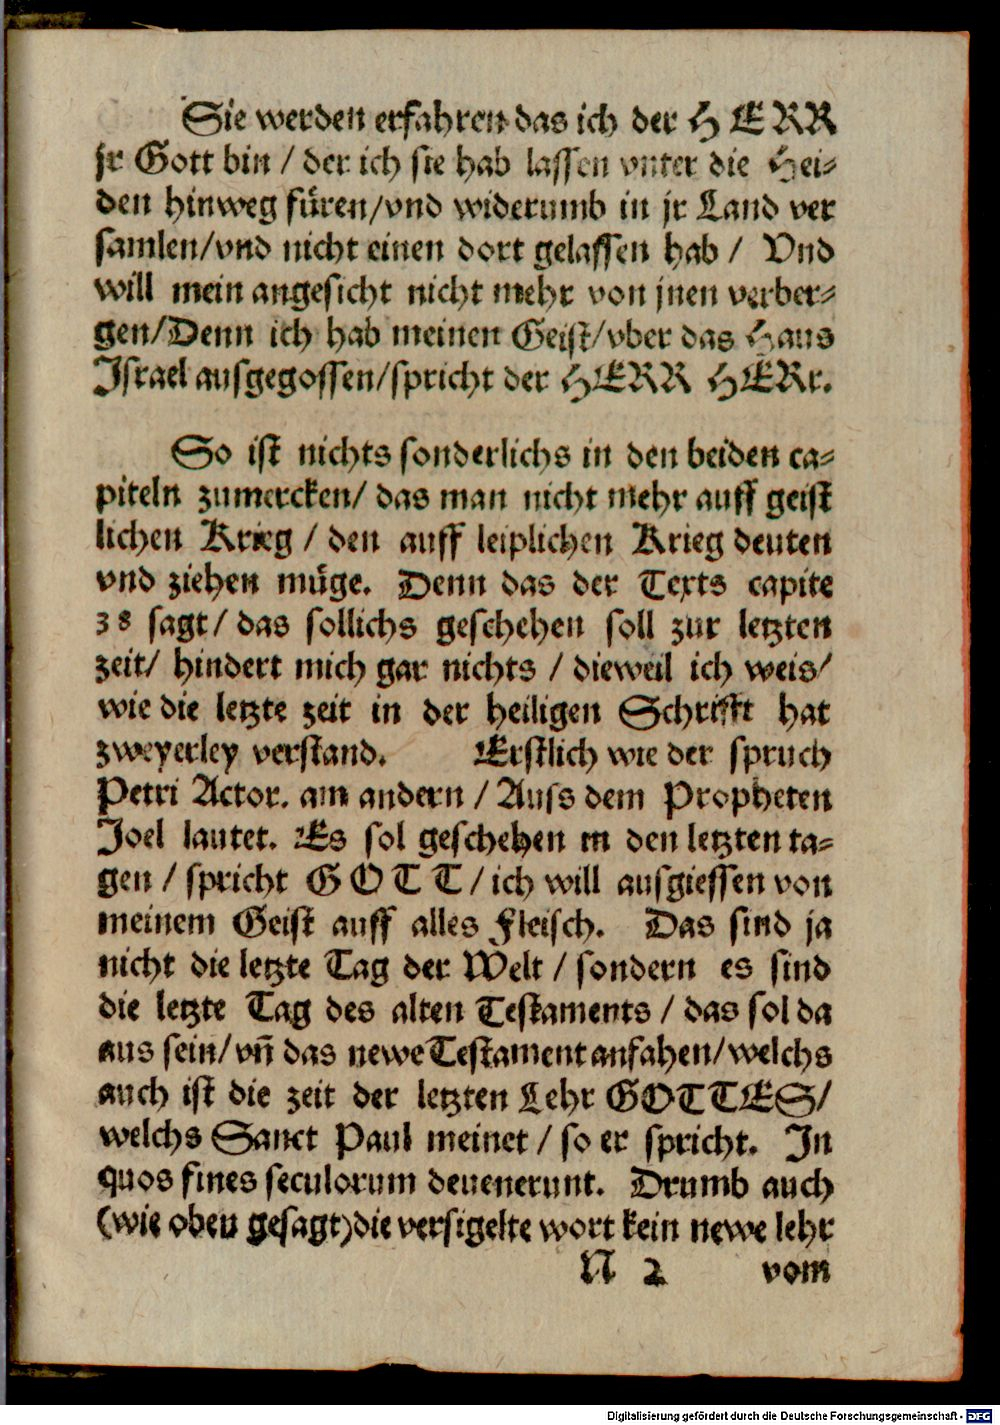 Sie werden erfahren das ich der HERR
jr Gott bin / der ich sie hab lassen vnter die Hei⸗
den hinweg füren/vnd widerumb in jr Land ver
samlen/vnd nicht einen dort gelassen hab / Vnd
will mein angesicht nicht mehr von jnen verber⸗
gen/Denn ich hab meinen Geist/vber das Haus
Israel ausgegossen/spricht der HERR HERr.
So ist nichts sonderlichs in den beiden ca⸗
piteln zumercken/ das man nicht mehr auff geist
lichen Krieg / den auff leiplichen Krieg deuten
vnd ziehen müge. Denn das der Texts capite
38 sagt/ das sollichs geschehen soll zur letzten
zeit/ hindert mich gar nichts / dieweil ich weis/
wie die letzte zeit in der heiligen Schrifft hat
zweyerley verstand. Erstlich wie der spruch
Petri Actor. am andern / Auss dem Propheten
Joel lautet. Es sol geschehen in den letzten ta⸗
gen / spricht GOTT / ich will ausgiessen von
meinem Geist auff alles Fleisch. Das sind ja
nicht die letzte Tag der Welt / sondern es sind
die letzte Tag des alten Testaments / das sol da
aus sein/vñ das newe Testament anfahen/welchs
auch ist die zeit der letzten Lehr GOTTES/
welchs Sanct Paul meinet / so er spricht. In
quos fines seculorum deuenerunt. Drumb auch
(wie oben gesagt)die versigelte wort kein newe lehr
N 2 vom
Digitalisierung gefördert durch die Deutsche Forschungsgemeinschaft - DFG